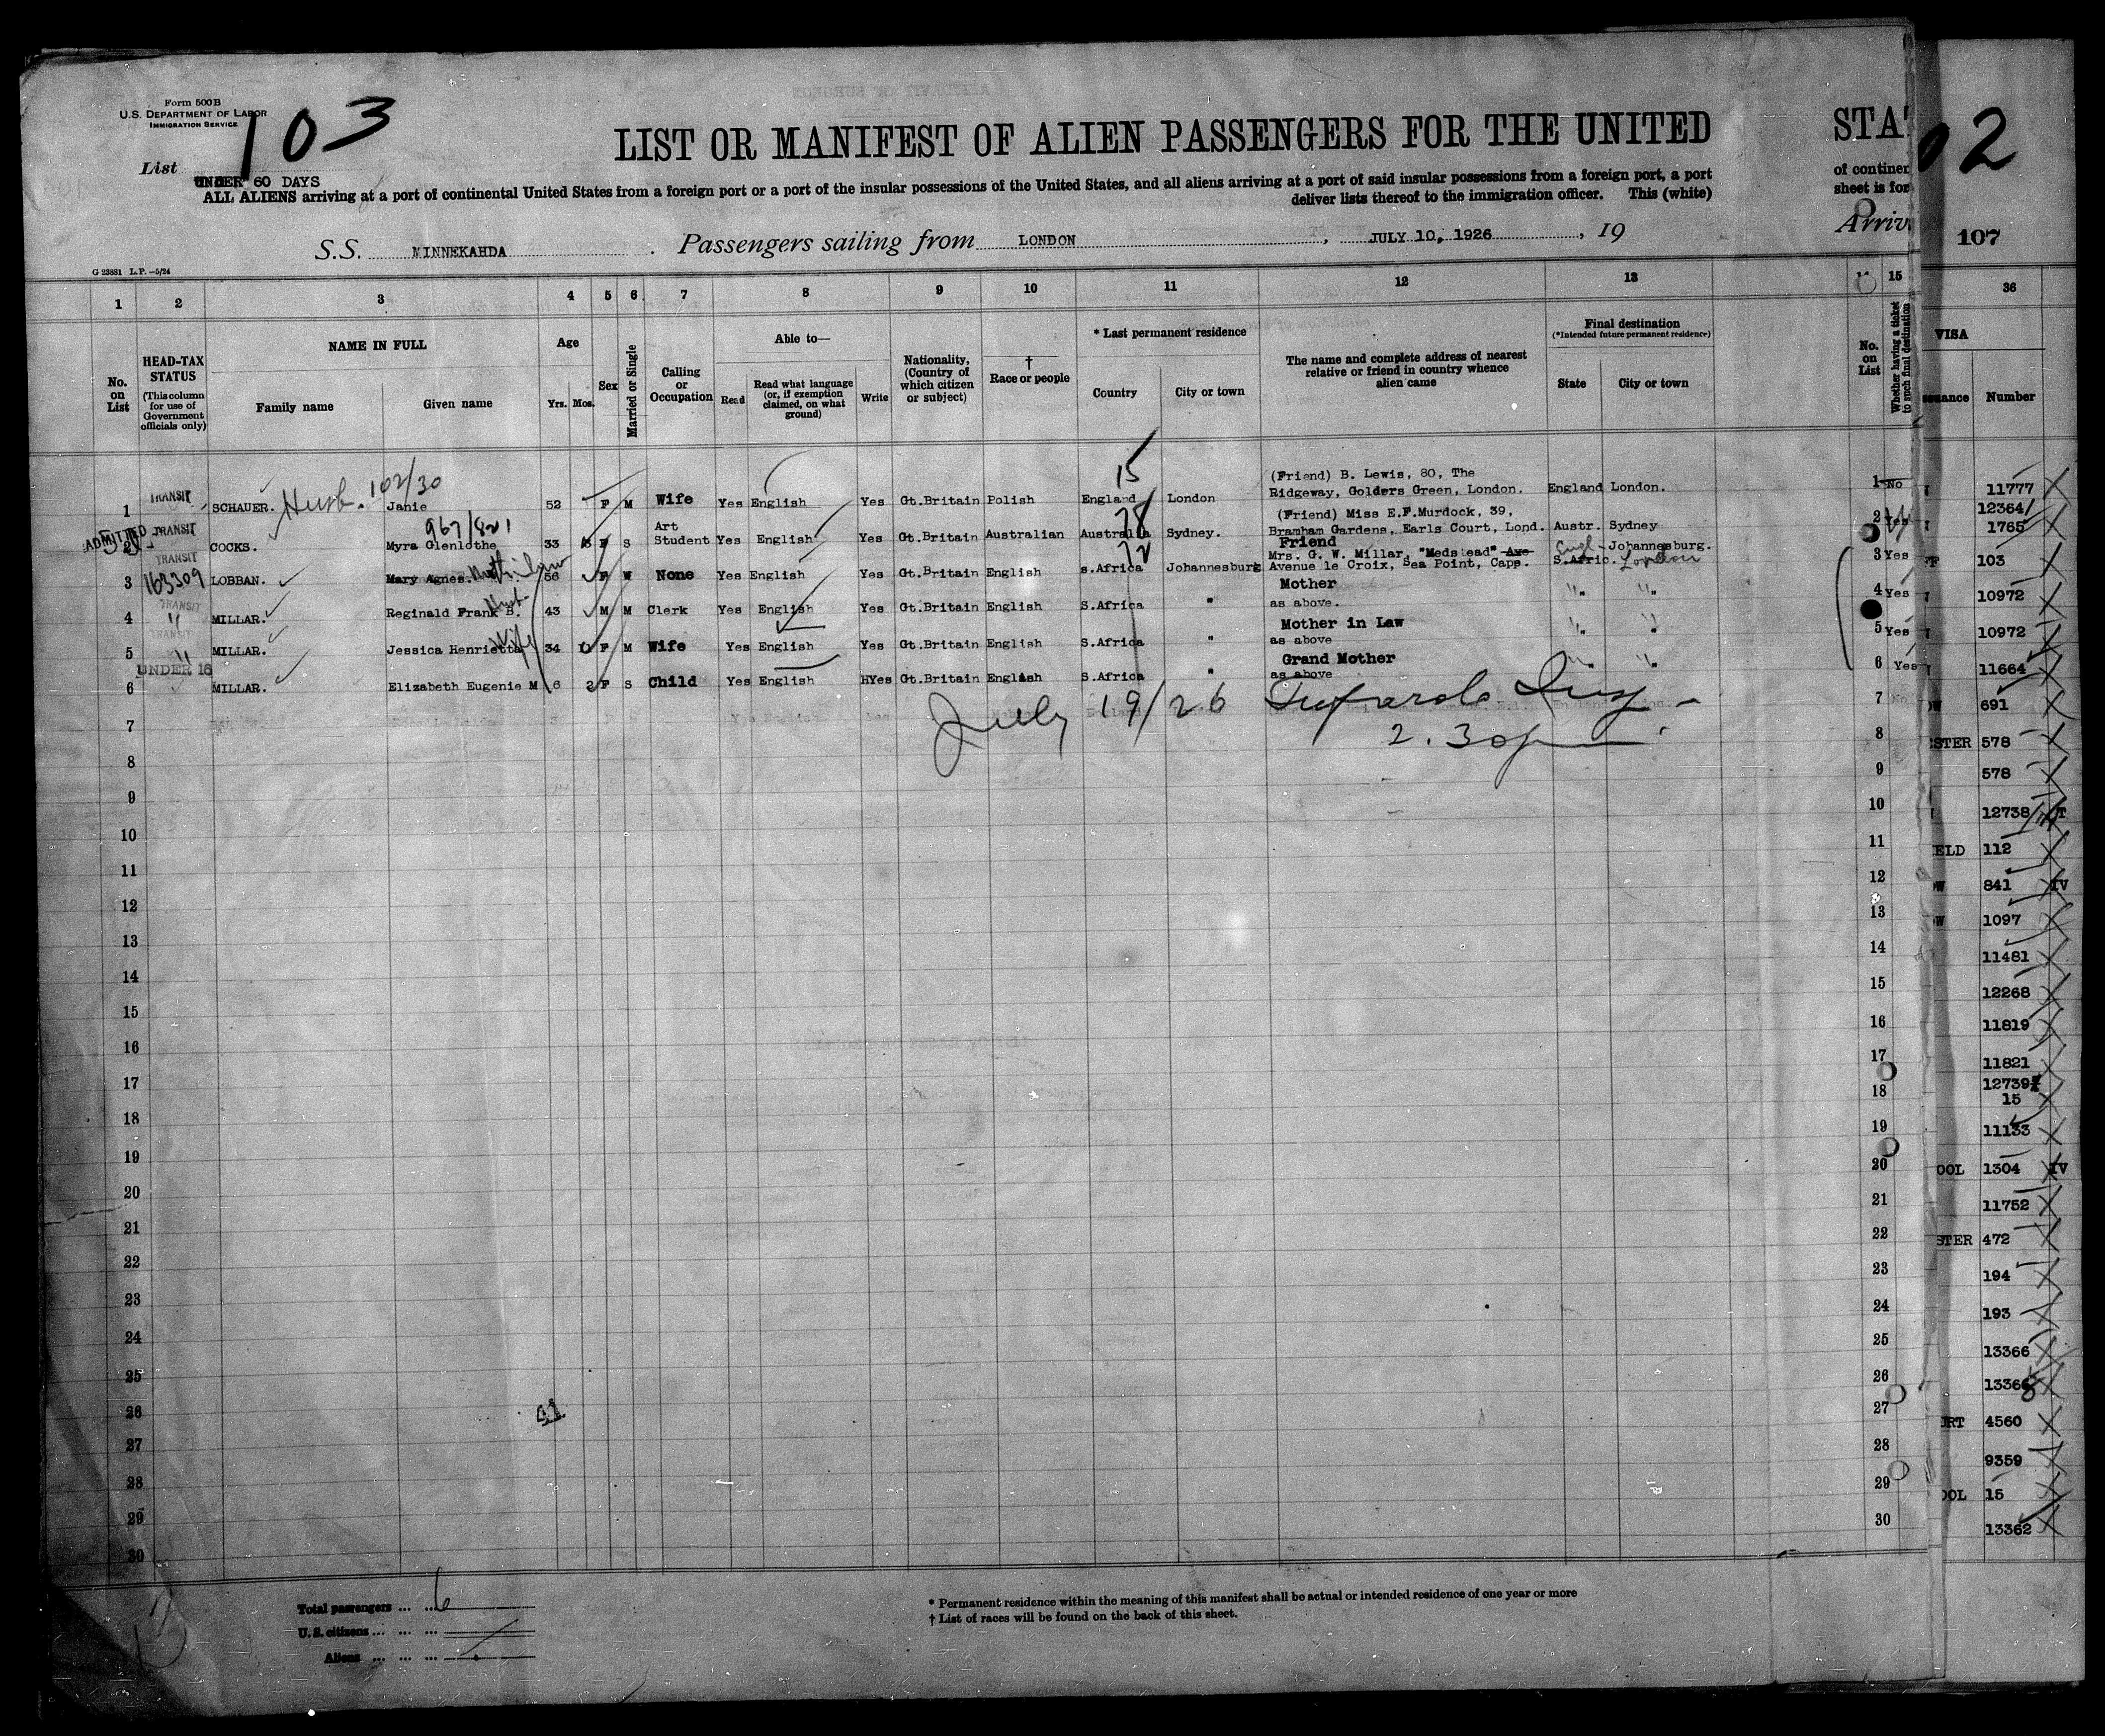 Form 500B
U.S. DEPARTMENT OF LABOR
IMMIGRATION SERVICE
103
List
LIST OR MANIFEST OF ALIEN PASSENGERS FOR THE UNITED
STA
02
UNDER 60 DAYS
ALL ALIENS arriving at a port of continental United States from a foreign port or a port of the insular possessions of the United States, and all aliens arriving at a port of said insular possessions from a foreign port, a port
of continen
deliver lists thereof to the immigration officer. This (white)
sheet is for
S.S. MINNEKAHDA. Passengers sailing from LONDON, JULY 10, 1926, 19
Arriv
107
G 23881 L.P.—5/24
1 2 3 4 5 6 7 8 9 10 11 12 13 15 36
No. on List
HEAD-TAX STATUS
(This column for use of Government officials only)
NAME IN FULL
Family name
Given name
Age
Yrs. Mos.
Sex
Married or Single
Calling or Occupation
Able to—
Read
Read what language (or, if exemption claimed, on what ground)
Write
Nationality, (Country of which citizen or subject)
† Race or people
* Last permanent residence
Country
City or town
The name and complete address of nearest relative or friend in country whence alien came
Final destination
(*Intended future permanent residence)
State
City or town
No. on List
Whether having a ticket to such final destination
VISA
Number
1 TRANSIT SCHAUER. Husb. 102/30 Janie 52 F M Wife Yes English Yes Gt.Britain Polish 15 England London (Friend) B. Lewis, 80, The Ridgeway, Golders Green, London. England London. 1 No 11777
ADMITTED 2 TRANSIT COCKS. 967/821 Myra Glenlothe 33 F S Art Student Yes English Yes Gt.Britain Australian 78 Australia Sydney. (Friend) Miss E.F.Murdock, 39, Bramham Gardens, Earls Court, Lond. Austr. Sydney 2 Yes 12364/ 1765
3 TRANSIT 163309 LOBBAN. Mary Agnes. 56 F W None Yes English Yes Gt.Britain English 72 S.Africa Johannesburg Friend Mrs. G. W. Millar, "Medstead" Ave Avenue le Croix, Sea Point, Cape. Engl- S.Afric. Johannesburg. London 3 Yes 103
4 TRANSIT " MILLAR. Reginald Frank B. 43 M M Clerk Yes English Yes Gt.Britain English S.Africa " Mother as above. " " 4 Yes 10972
5 TRANSIT " MILLAR. Jessica Henrietta Wife 34 11 F M Wife Yes English Yes Gt.Britain English S.Africa " Mother in Law as above " " 5 Yes 10972
6 UNDER 16 MILLAR. Elizabeth Eugenie M 6 2 F S Child Yes English HYes Gt.Britain English S.Africa " Grand Mother as above " " 6 Yes 11664
July 19/26
2.30p
7 7 691
8 8 STER 578
9 9 578
10 10 12738
11 11 ELD 112
12 12 841 IV
13 13 1097
14 14 11481
15 15 12268
16 16 11819
17 17 11821
18 18 12739 15
19 19 11133
20 20 OOL 1304 IV
21 21 11752
22 22 STER 472
23 23 194
24 24 193
25 25 13366
26 26 13366
27 27 URT 4560
28 28 9359
29 29 OOL 15
30 30 13362
41
Total passengers ... ... 6
U. S. citizens ... ... ...
Aliens ... ... ...
* Permanent residence within the meaning of this manifest shall be actual or intended residence of one year or more
† List of races will be found on the back of this sheet.